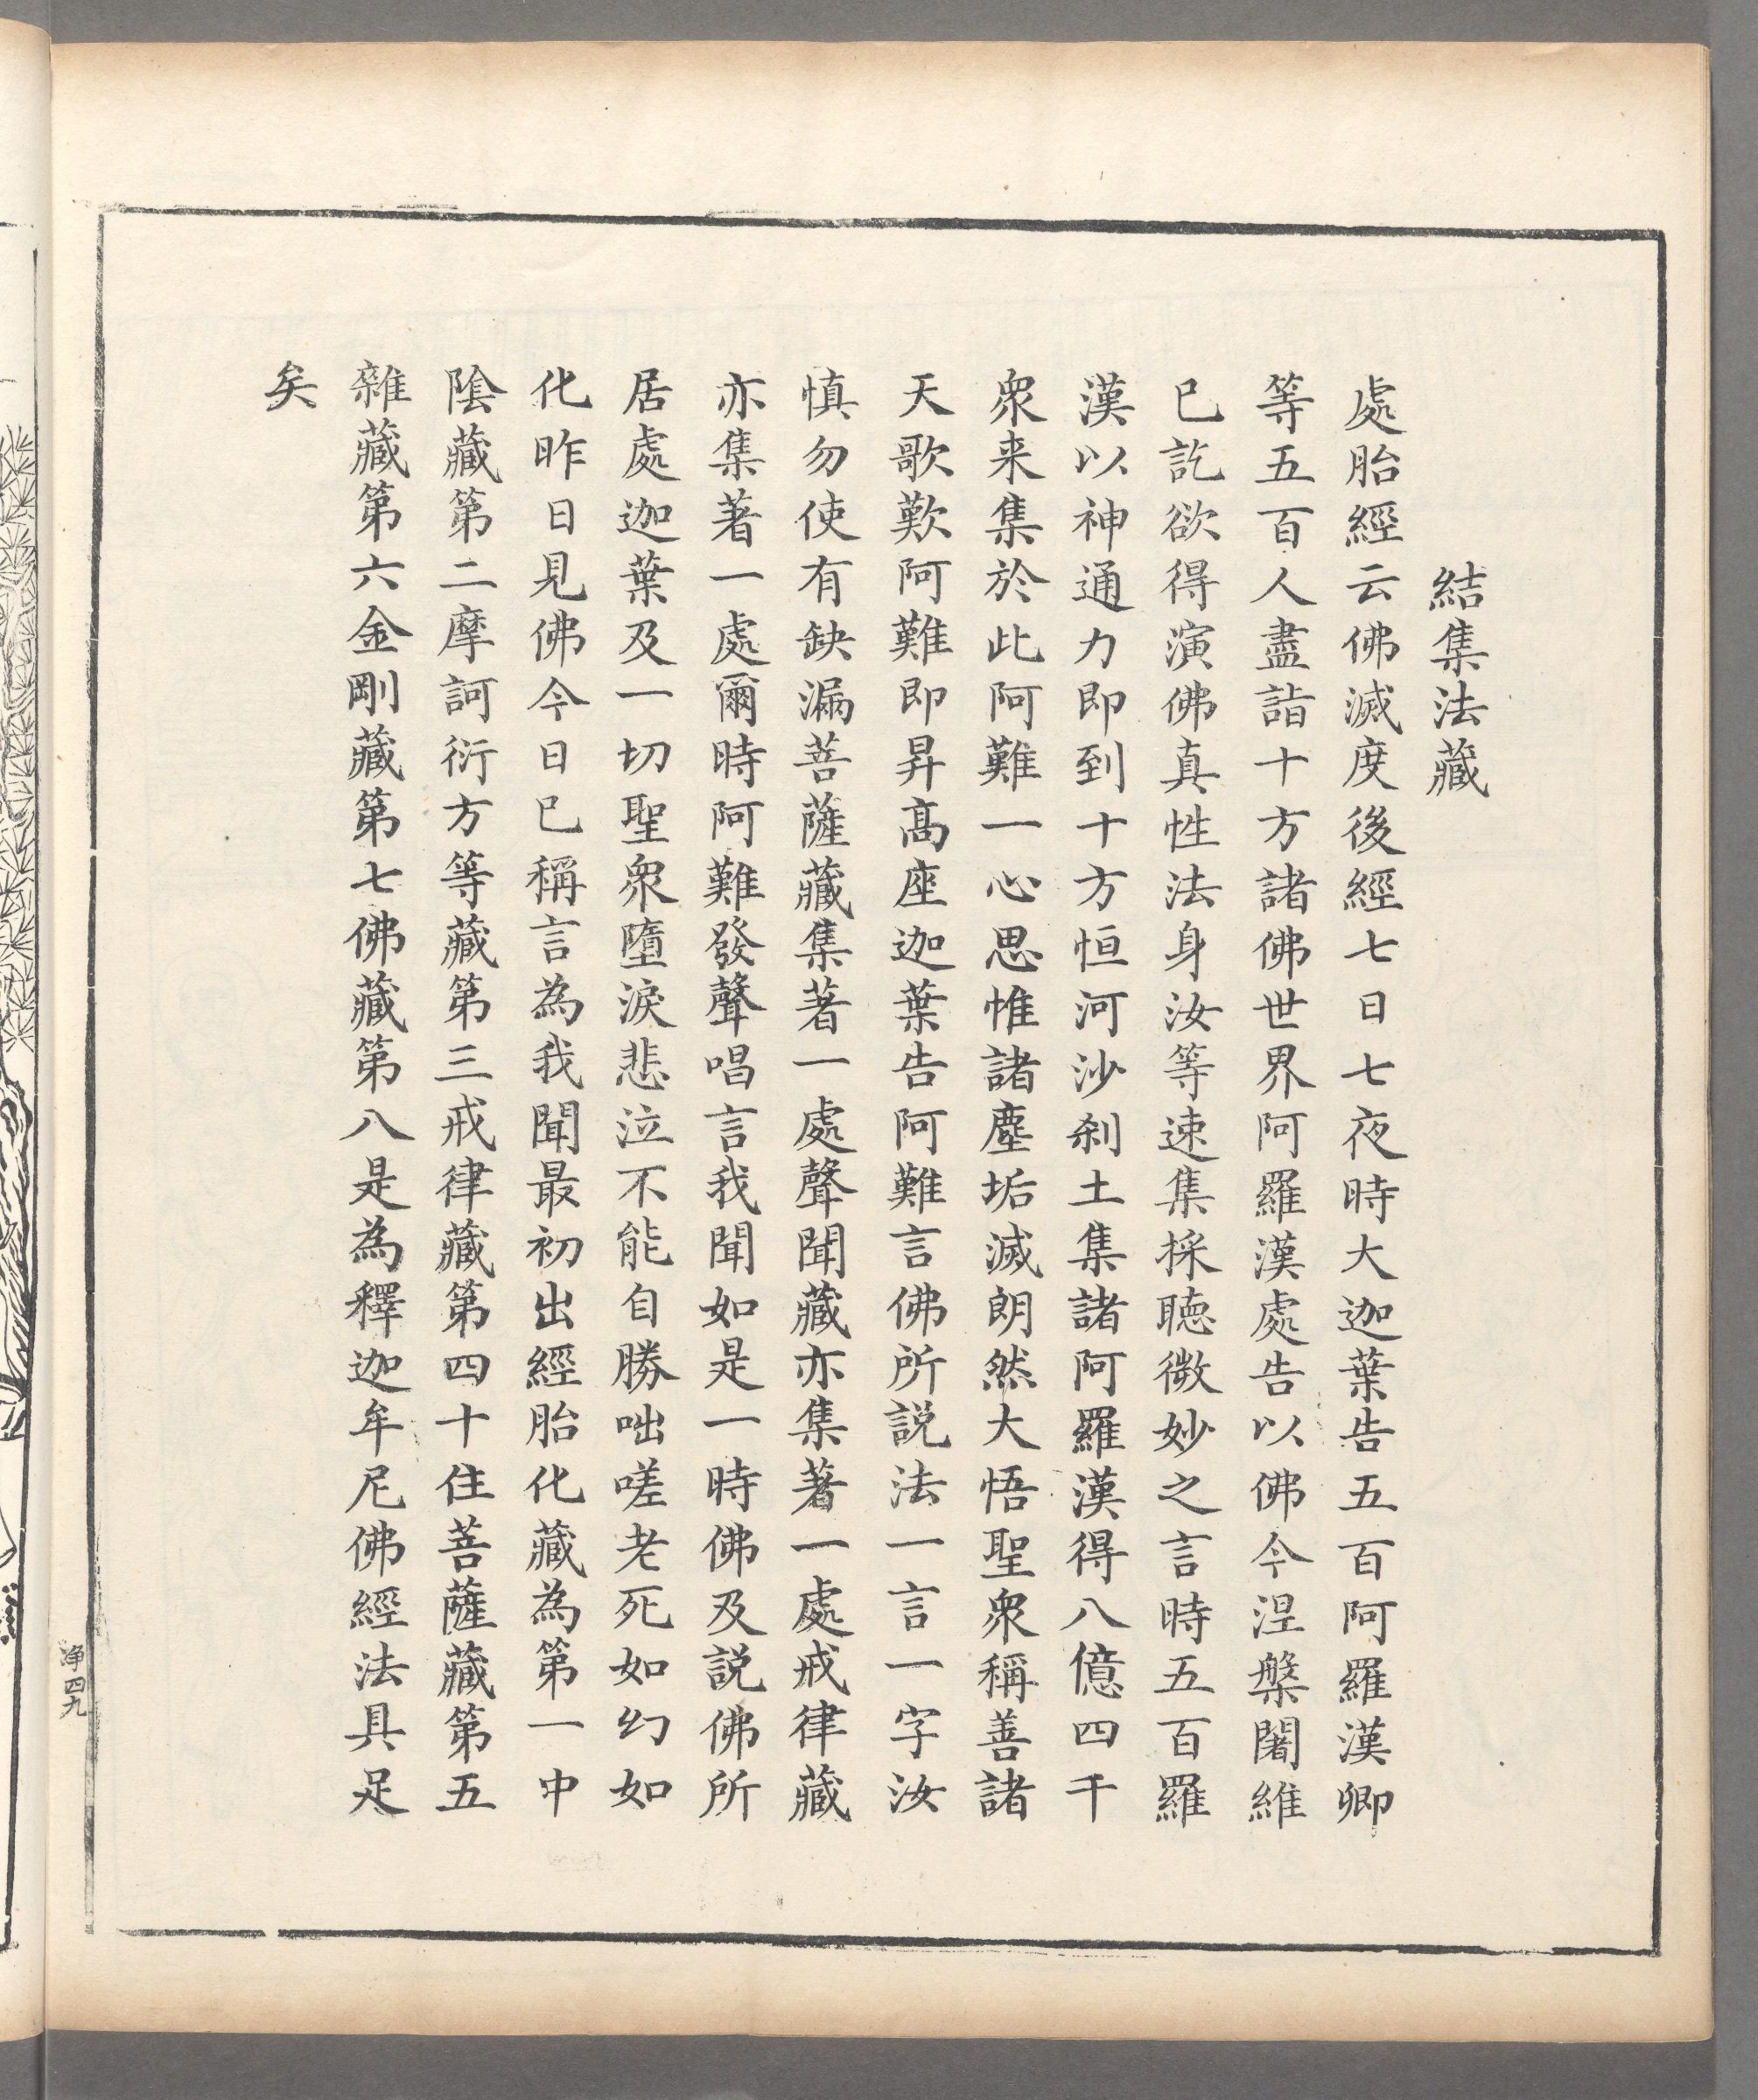 結集法藏
處胎經云佛滅度後經七日七夜時大迦葉告五百阿羅漢卿
等五百人盡詣十方諸佛世界阿羅漢處告以佛今涅槃闍維
已訖欲得演佛真性法身汝等速集採聽微妙之言時五百羅
漢以神通力即到十方恒河沙剎土集諸阿羅漢得八億四千
眾来集於此阿難一心思惟諸塵垢滅朗然大悟聖眾稱善諸
天歌歎阿難即昇髙座迦葉告阿難言佛所説法一言一字汝
慎勿使有缺漏菩薩藏集著一處聲聞藏亦集著一處戒律藏
亦集著一處爾時阿難發聲唱言我聞如是一時佛及説佛所
居處迦葉及一切聖眾墮淚悲泣不能自勝咄嗟老死如幻如
化昨日見佛今日已稱言為我聞最初出經胎化藏為第一中
陰藏第二摩訶衍方等藏第三戒律藏第四十住菩薩藏第五
雜藏第六金剛藏第七佛藏第八是為釋迦牟尼佛經法具足
矣
净四九